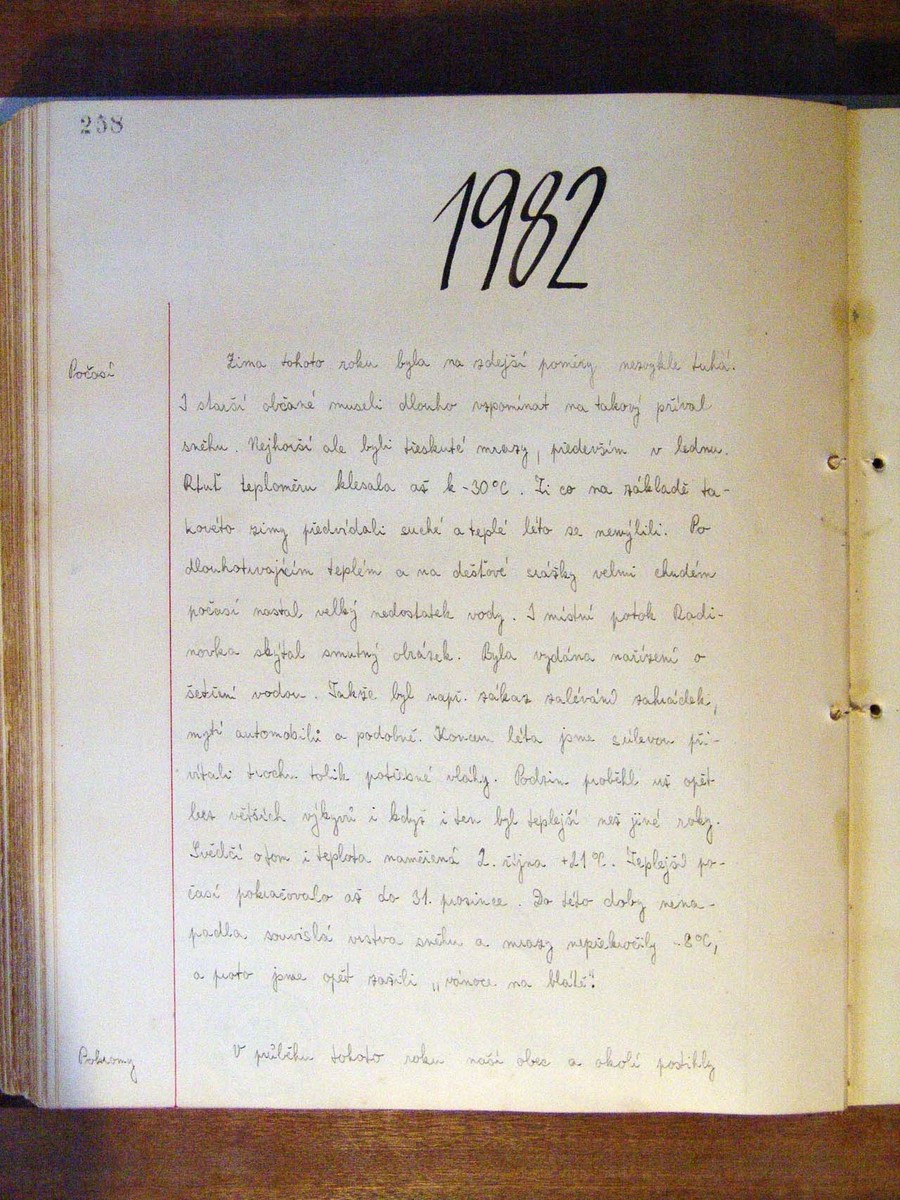 258
1982
Počasí
Zima tohoto roku byla na zdejší poměry nezvykle tuhá.
I starší občané museli dlouho vzpomínat na takový příval
sněhu. Nejhorší ale byli třeskuté mrazy, především v lednu.
Rtuť teploměru klesala až k -30°C. Ti co na základě ta-
kovéto zimy předvídali suché a teplé léto se nemýlili. Po
dlouhotrvajícím teplém a na dešťové srážky velmi chudém
počasí nastal velký nedostatek vody. I místní potok Radi-
novka skýtal smutný obrázek. Byla vydána nařízení o
šetření vodou. Takže byl např. zákaz zalévání zahrádek,
mytí automobilů a podobně. Koncem léta jsme s úlevou při-
vítali trochu tolik potřebné vláhy. Podzim proběhl už opět
bez větších výkyvů i když i ten byl teplejší než jiné roky.
Svědčí o tom i teplota naměřená 2. října +21°C. Teplejší po-
časí pokračovalo až do 31. prosince. Do této doby nena-
padla souvislá vrstva sněhu a mrazy nepřekročily -8°C,
a proto jsme opět zažili „vánoce na blátě".
Pohromy
V průběhu tohoto roku naši obec a okolí postihly